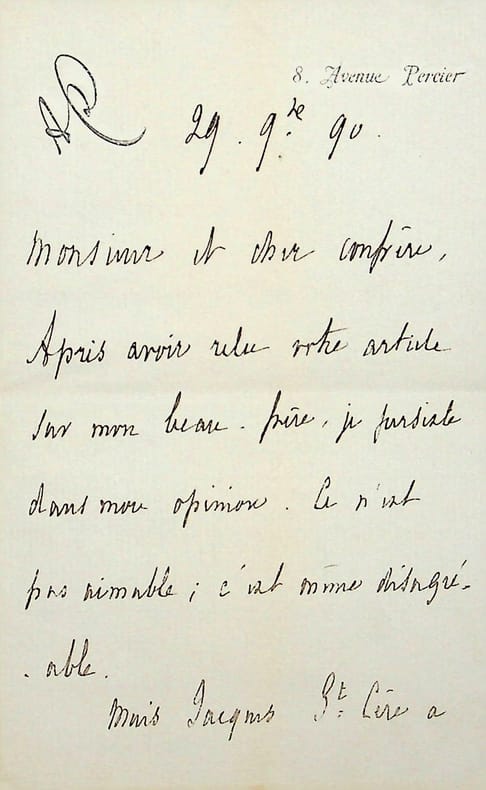 8. Avenue Percier
29. 9bre 90.
Monsieur et cher confrère,
Après avoir relu votre article
sur mon beau-frère, je persiste
dans mon opinion. Ce n'est
pas aimable; c'est même désagré-
-able.
Mais Jacques St. Cère a